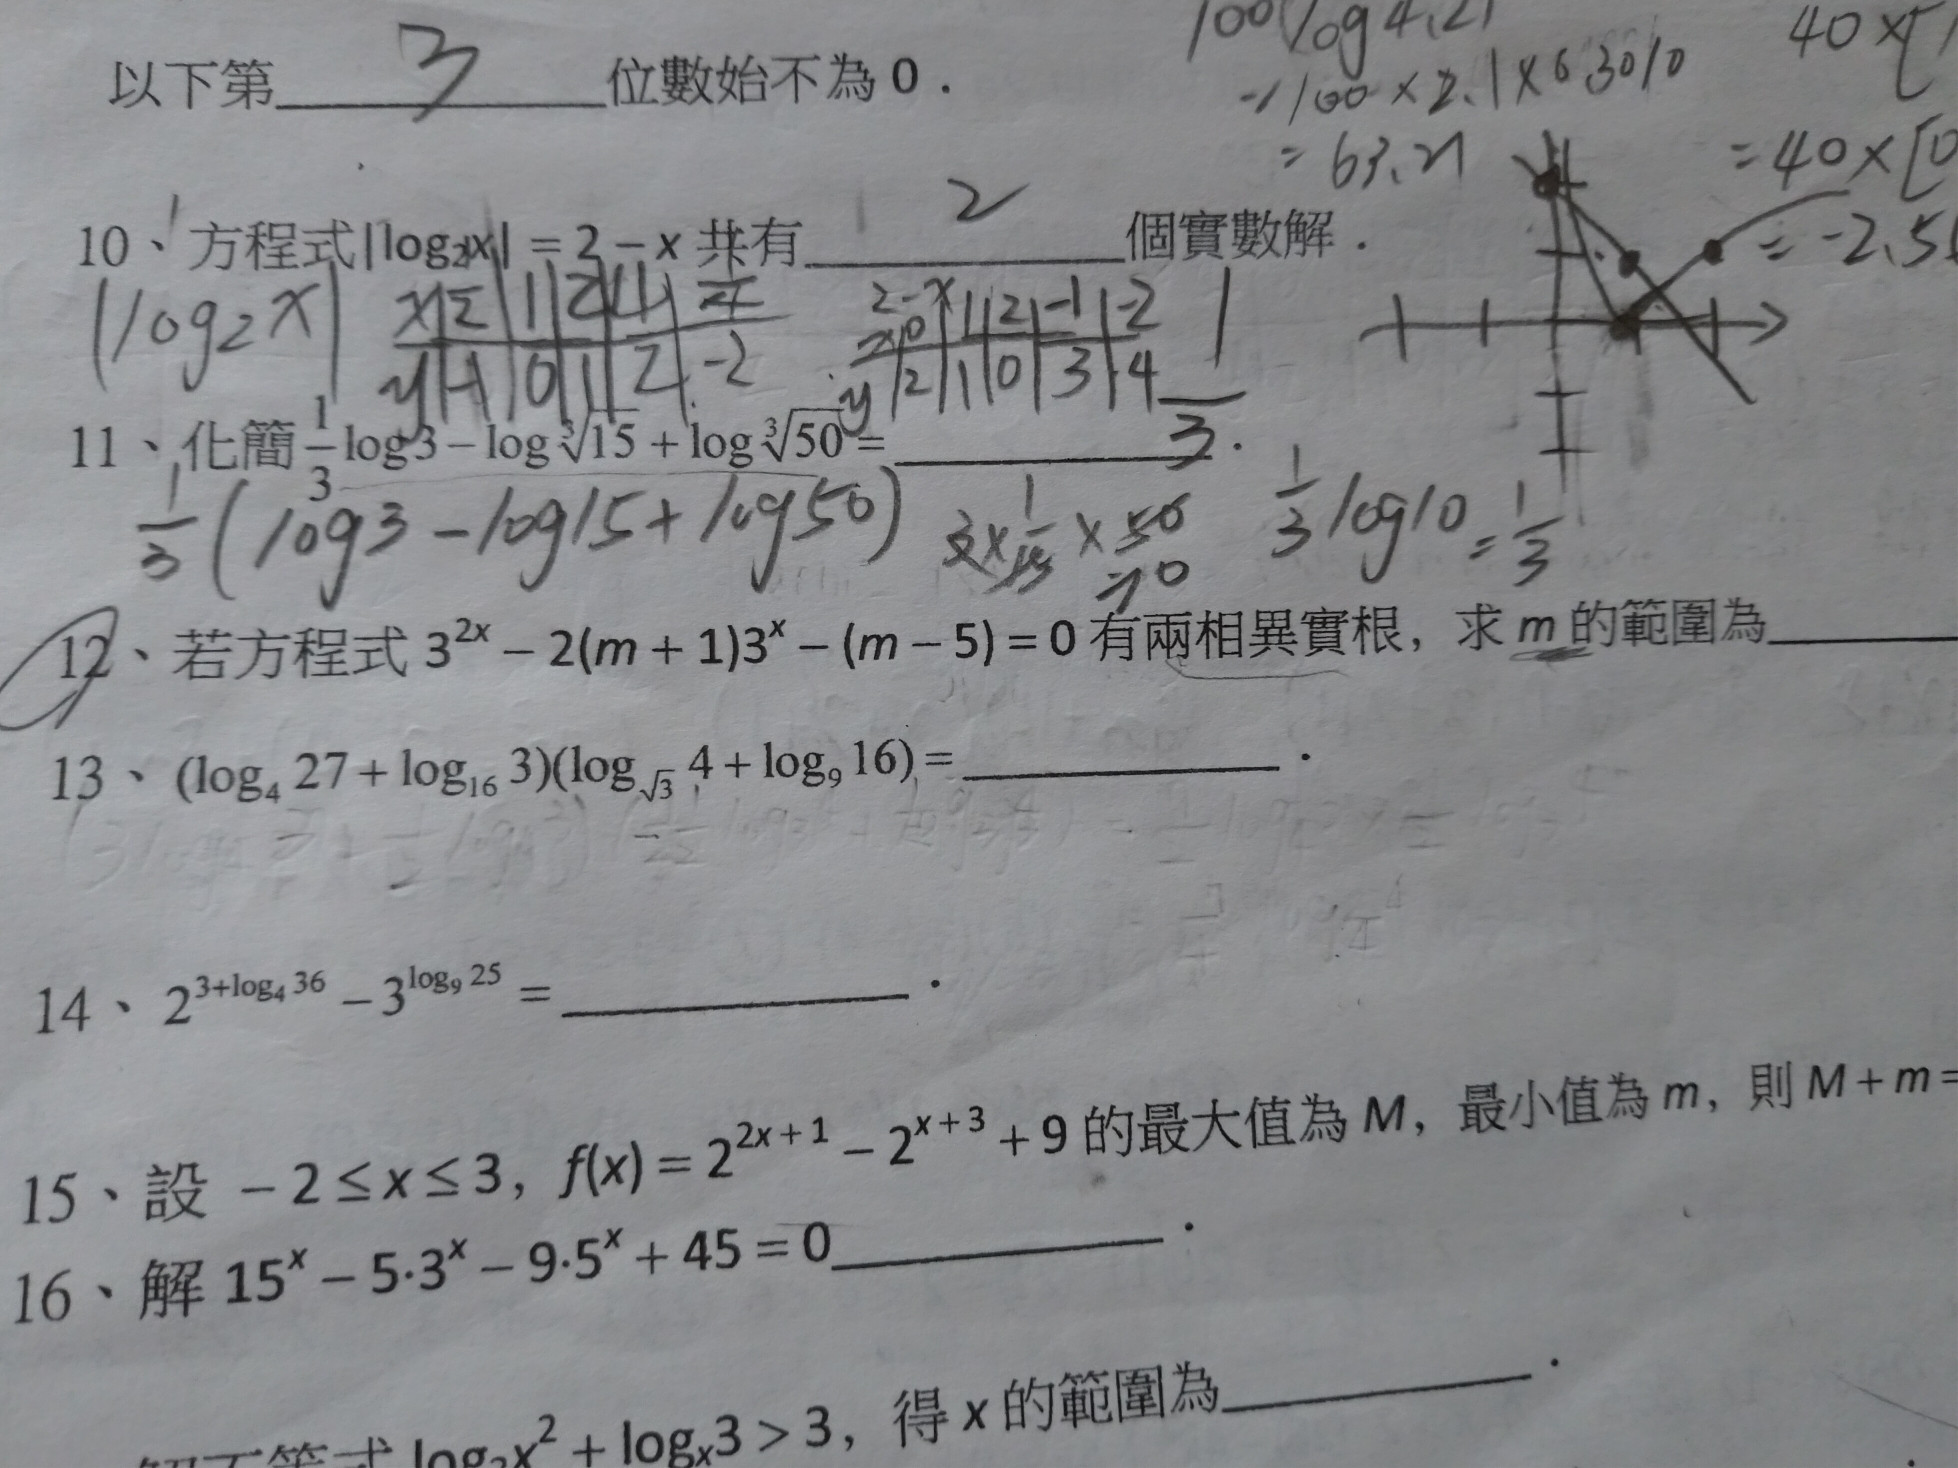 100 log 4.21
40×[
以下第 3 位數始不為 0．
≒100×2.1×0.3010
= 63.21
=40×[0
= -2.5
10、方程式|log₂x| = 2 − x 共有 2 個實數解．
|log₂x|
x 1/2 1 2 4 1/4
y -1 0 1 2 -2
2-x
x 0 1 2 -1 -2
y 2 1 0 3 4
11、化簡 1/3 log3 − log ∛15 + log ∛50 = 1/3．
1/3 (log3 − log15 + log50)
3×1/15×50
=10
1/3 log10 = 1/3
12、若方程式 3²ˣ − 2(m + 1)3ˣ − (m − 5) = 0 有兩相異實根，求 m 的範圍為
13、(log₄ 27 + log₁₆ 3)(log_√3 4 + log₉ 16) = ．
14、2^(3+log₄ 36) − 3^(log₉ 25) = ．
15、設 − 2 ≤ x ≤ 3，f(x) = 2^(2x + 1) − 2^(x + 3) + 9 的最大值為 M，最小值為 m，則 M + m =
16、解 15ˣ − 5·3ˣ − 9·5ˣ + 45 = 0 ．
解不等式 log₃x² + logₓ3 > 3，得 x 的範圍為 ．